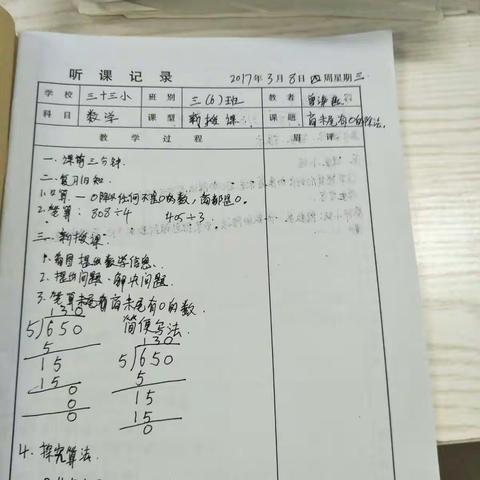 听课记录 2017年3月8日 四 周星期三
学校 三十三小 班别 三(6)班 教者
科目 数学 课型 新授课 课题 商末尾有0的除法
教学过程 眉评
一、课前三分钟.
二、复习旧知.
1.口算. — 0除以任何不是0的数,商都是0。
2.笔算: 808÷4 405÷3
三、新授课
1.看图提出数学信息.
2.提出问题.解决问题.
3.笔算末尾商末尾有0的数.
130 简便写法
5)650 130
5 5)650
15 5
15 15
0 15
0 0
0
4.探究算法.